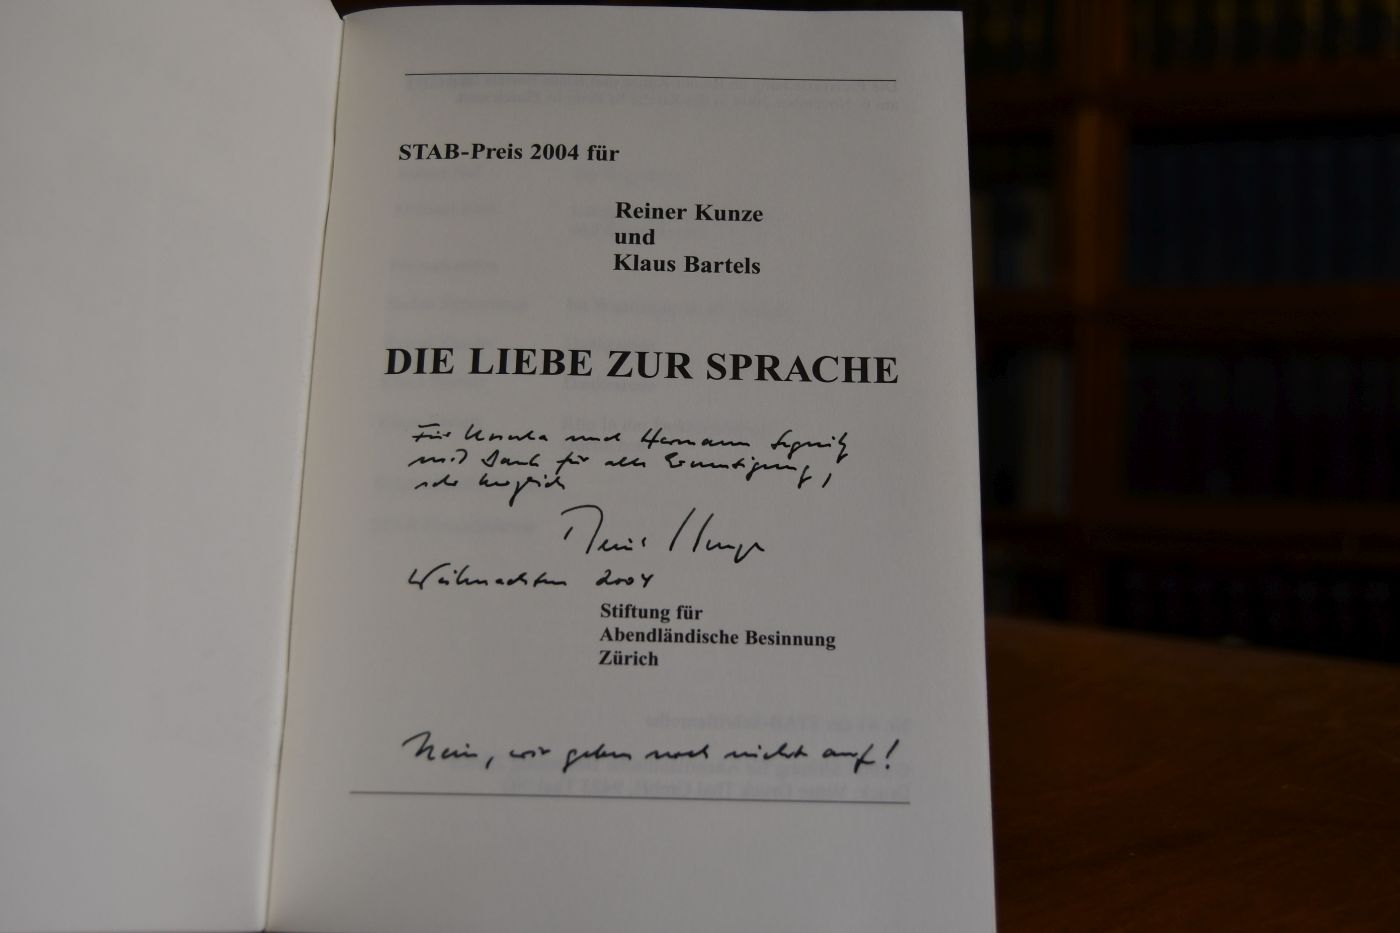 STAB-Preis 2004 für
Reiner Kunze
und
Klaus Bartels
DIE LIEBE ZUR SPRACHE
Für Ursula und Hermann
mit Dank für alle Ermutigung,
sehr herzlich
Reiner Kunze
Weihnachten 2004
Stiftung für
Abendländische Besinnung
Zürich
Nein, wir geben noch nicht auf!